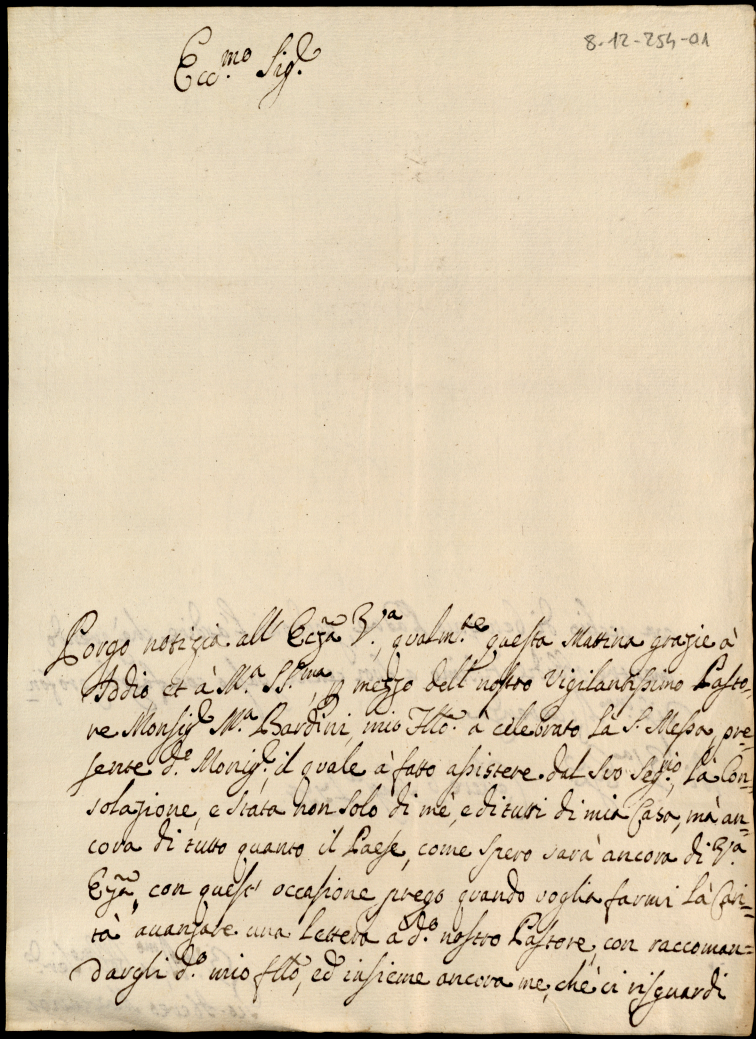 8-12-254-01
Ecc.mo Sig.r
Porgo notizia all' Ecza V.a, qualm.te questa Mattina grazie à
Iddio et à M.a SS.ma, p mezzo dell' nostro Vigilantissimo Pasto-
re Monsig.r M.a Bardini, mio Fllo. à celebrato la S. Messa, pre-
sente d.o Monig.r, il quale à fatto assistere dal suo Seg.rio, là Con-
solazione, e Stata non solo di mè, e di tutti di mia Casa, mà an-
cora di tutto quanto il Paese, come spero sarà ancora di V.a
Ecza, con quest' occasione prego quando voglia farmi là Cari-
tà avanzare una Lettera a d.o nostro Pastore, con raccoman-
dargli d.o mio fllo, ed insieme ancora me, chè ci risguardi